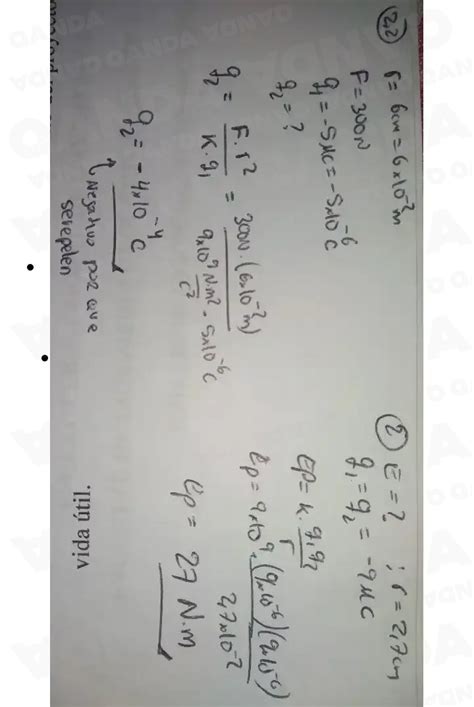 22 r = 6cm = 6x10⁻²m
F = 300N
q₁ = -5μC = -5x10⁻⁶C
q₂ = ?
q₂ = F.r² / K.q₁ = 300N.(6x10⁻²m) / 9x10⁹ N.m²/C² - 5x10⁻⁶C
q₂ = -4x10⁻⁴C
Negativo por que
serepelen
2 E = ? ; r = 2,7cm
q₁ = q₂ = -9μC
Ep = k. q₁q₂ / r
Ep = 9x10⁹. (9x10⁻⁶)(9x10⁻⁶) / 2,7x10⁻²
Ep = 27 N.m
vida útil.
QANDA